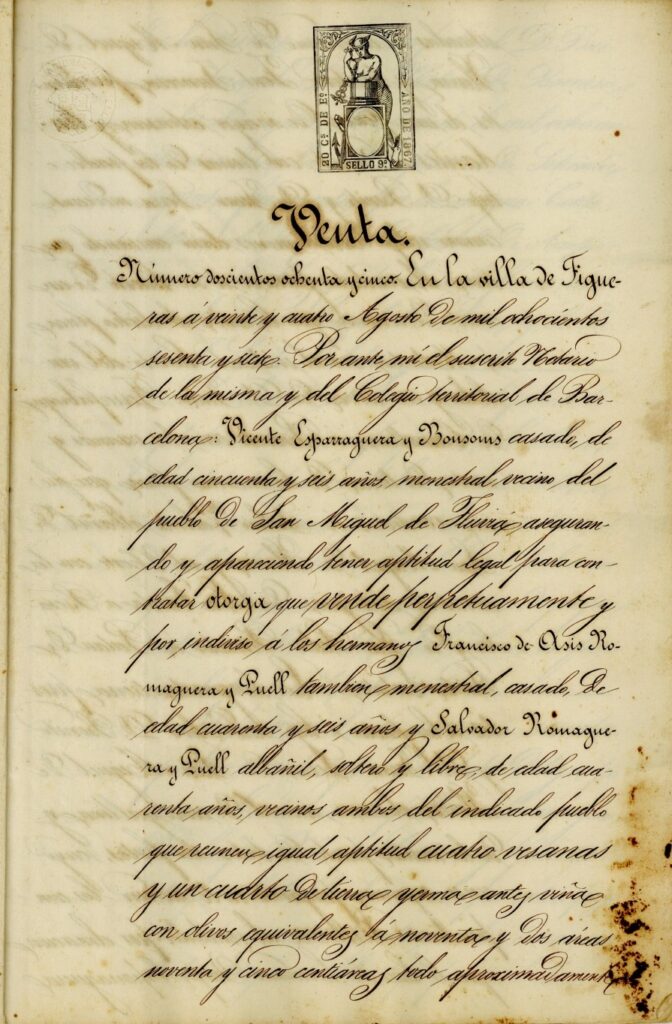 20 Cs DE Eo
AÑO DE 1867
SELLO 9o
Venta.
Número doscientos ochenta y cinco. En la villa de Figue-
ras á veinte y cuatro Agosto de mil ochocientos
sesenta y siete. Por ante mi el suscrito Notario
de la misma y del Colegio territorial de Bar-
celona: Vicente Esparraguera y Bonsoms casado, de
edad cincuenta y seis años, menestral vecino del
pueblo de San Miguel de Fluviá, aseguran-
do y apareciendo tener aptitud legal para con-
tratar otorga que vende perpetuamente y
por indiviso á los hermanos Francisco de Asis Ro-
maguera y Puell tambien menestral, casado, de
edad cuarenta y seis años y Salvador Romague-
ra y Puell albañil, soltero y libre, de edad cua-
renta años, vecinos ambos del indicado pueblo
que reunen igual aptitud cuatro vesanas
y un cuarto de tierra yerma antes viña
con olivos equivalentes á noventa y dos áreas
noventa y cinco centiáreas todo aproximadamente